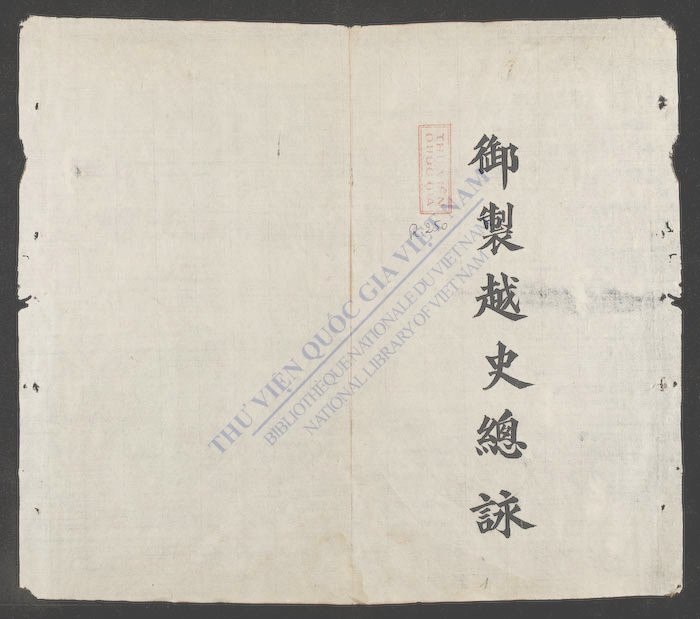 御製越史總詠
THƯ VIỆN
QUỐC GIA
R.250
THƯ VIỆN QUỐC GIA VIỆT NAM
BIBLIOTHÈQUE NATIONALE DU VIETNAM
NATIONAL LIBRARY OF VIETNAM
1